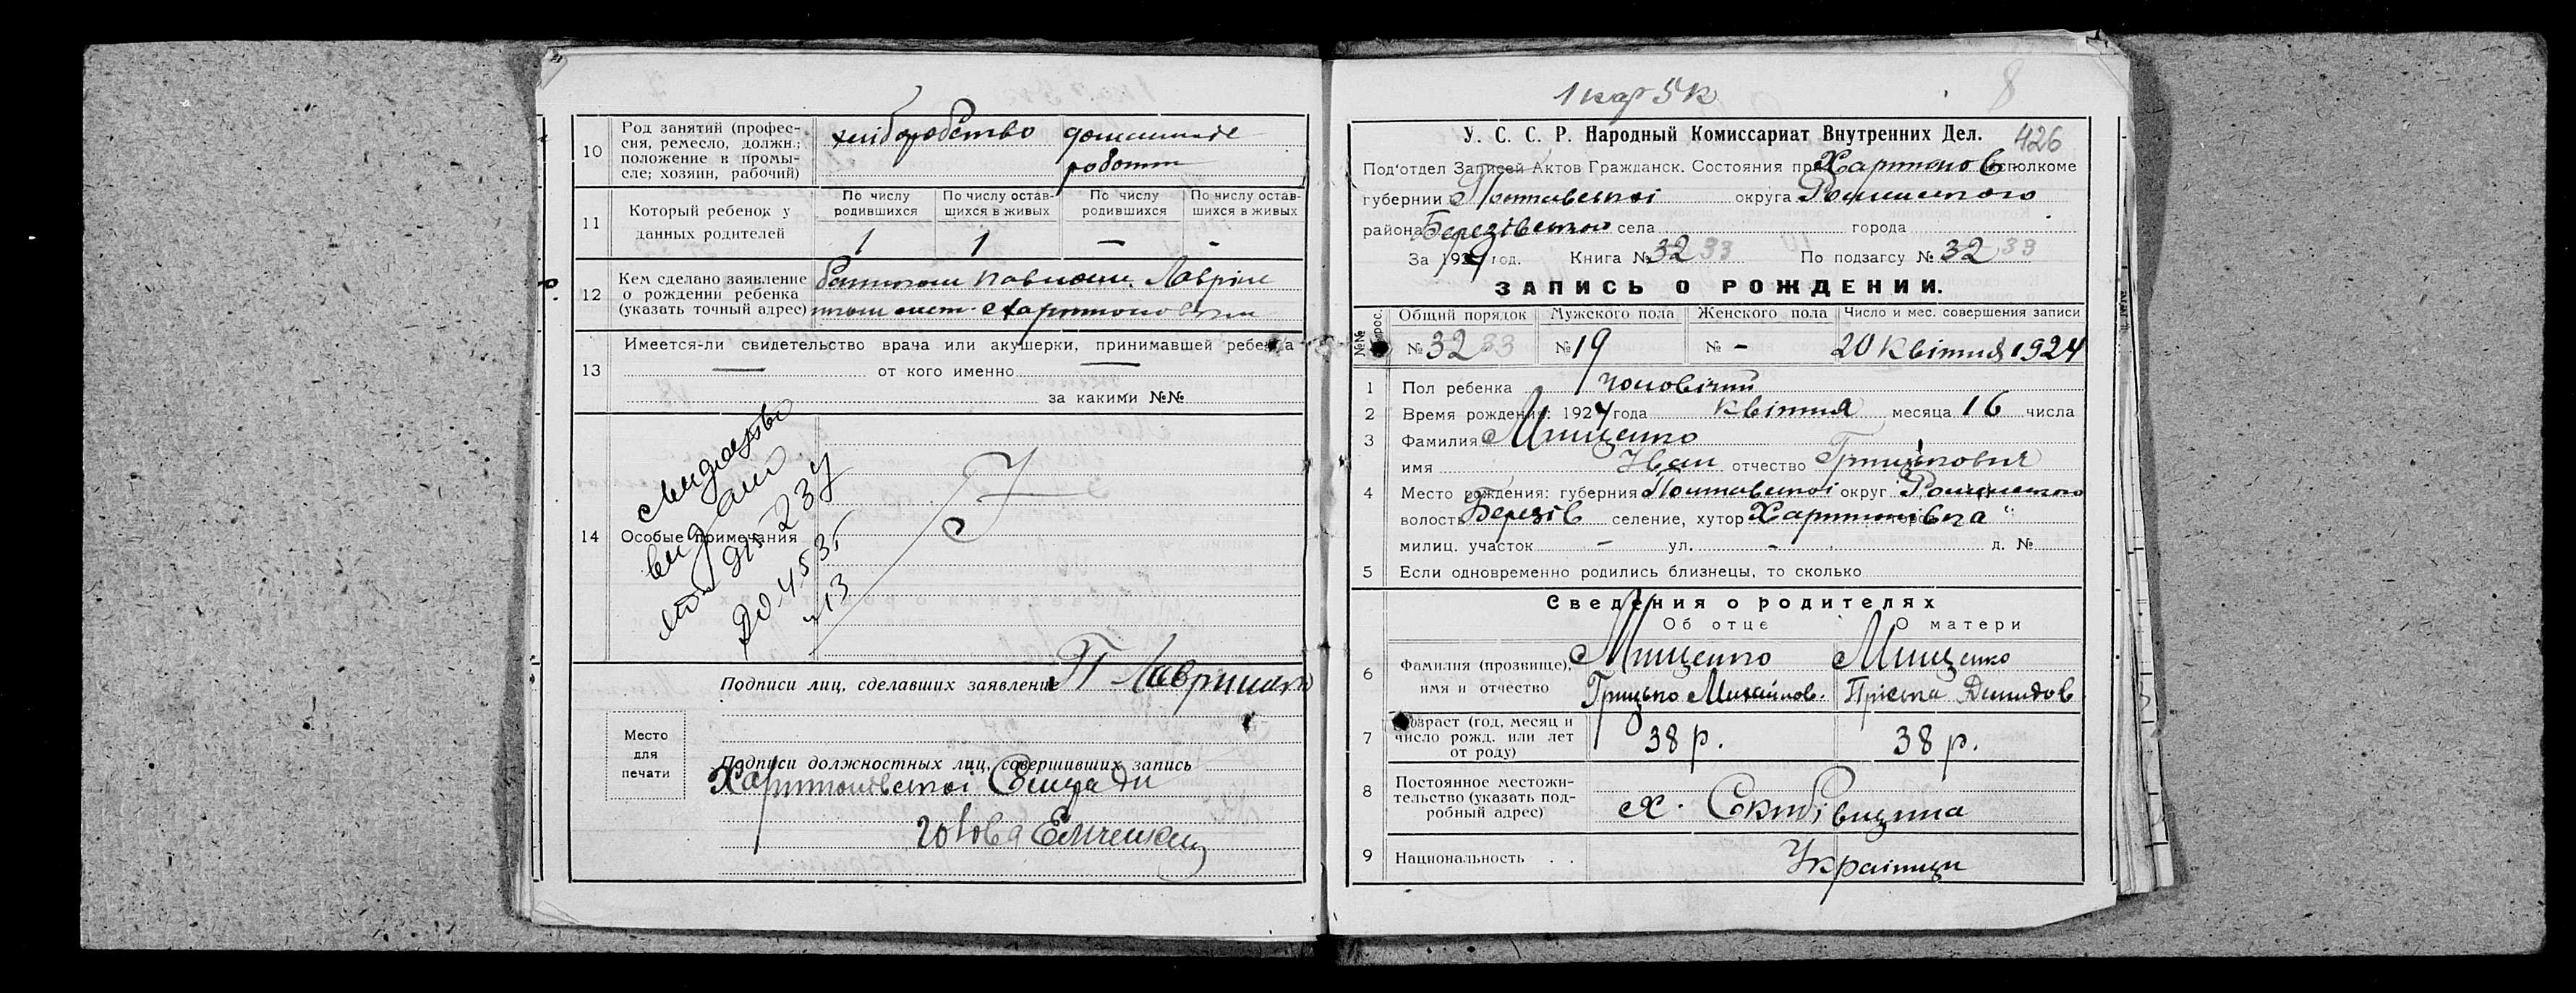 10 Род занятий (профес-
сия, ремесло, должн.;
положение в промы-
сле; хозяин, рабочий)
хліборобство домашнє
роботи
11 Который ребенок у
данных родителей
По числу
родившихся
По числу остав-
шихся в живых
По числу
родившихся
По числу остав-
шихся в живых
1 1 — -
12 Кем сделано заявление
о рождении ребенка
(указать точный адрес)
Павлом Лаврін
13 Имеется-ли свидетельство врача или акушерки, принимавшей ребенка
— от кого именно —
за какими №№
14 Особые примечания
Подписи лиц, сделавших заявление П Лавриненко
Место
для
печати
Подписи должностных лиц, совершивших запись
Харитонівської Сільради
голова
1 кар 5 к
8
У. С. С. Р. Народный Комиссариат Внутренних Дел. 426
Под'отдел Записей Актов Гражданск. Состояния при Харитонов Исполкоме
губернии Полтавської округа Роменського
района Березівського села города
За 1924 год. Книга № 32 33 По подзагсу № 32 33
ЗАПИСЬ О РОЖДЕНИИ.
№№
Общий порядок Мужского пола Женского пола Число и мес. совершения записи
№ 32 33 № 19 № - 20 квітня 1924
1 Пол ребенка Чоловічий
2 Время рождения: 1924 года квітня месяца 16 числа
3 Фамилия Мищенко
имя Иван отчество Грицькович
4 Место рождения: губерния Полтавської округ Роменського
волость Березів селение, хутор Харитонівка "
милиц. участок - ул. - д. №
5 Если одновременно родились близнецы, то сколько
Сведения о родителях
Об отце О матери
6 Фамилия (прозвище),
имя и отчество
Мищенко Мищенко
Грицько Михайлов. Пріська Демидов
7 Возраст (год, месяц и
число рожд. или лет
от роду)
38 р. 38 р.
8 Постоянное местожи-
тельство (указать под-
робный адрес)
х.
9 Национальность . . Українци